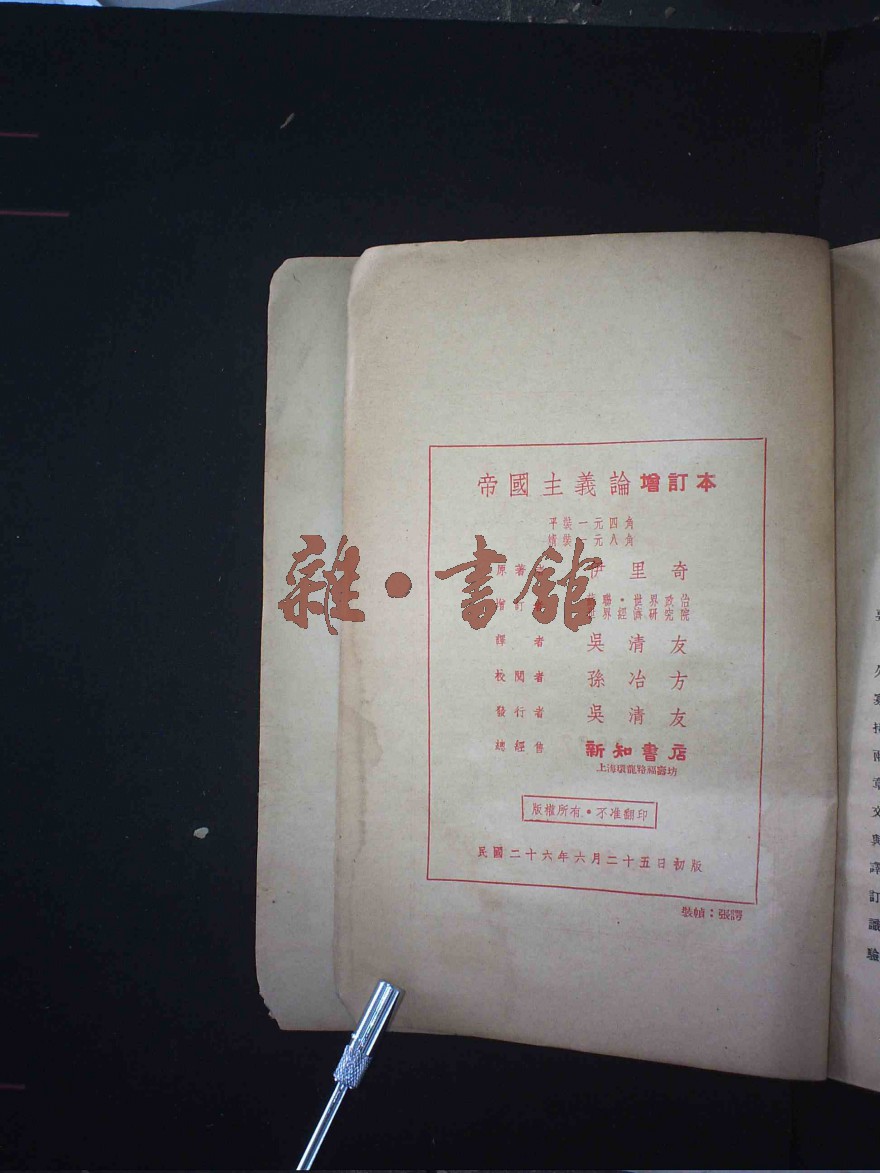 帝國主義論增訂本
平裝一元四角
精裝一元八角
原著 伊里奇
增訂 蘇聯·世界政治
世界經濟研究院
譯者 吳清友
校閱者 孫冶方
發行者 吳清友
總經售 新知書店
上海環龍路福壽坊
版權所有·不准翻印
民國二十六年六月二十五日初版
裝幀：張諤
雜·書館